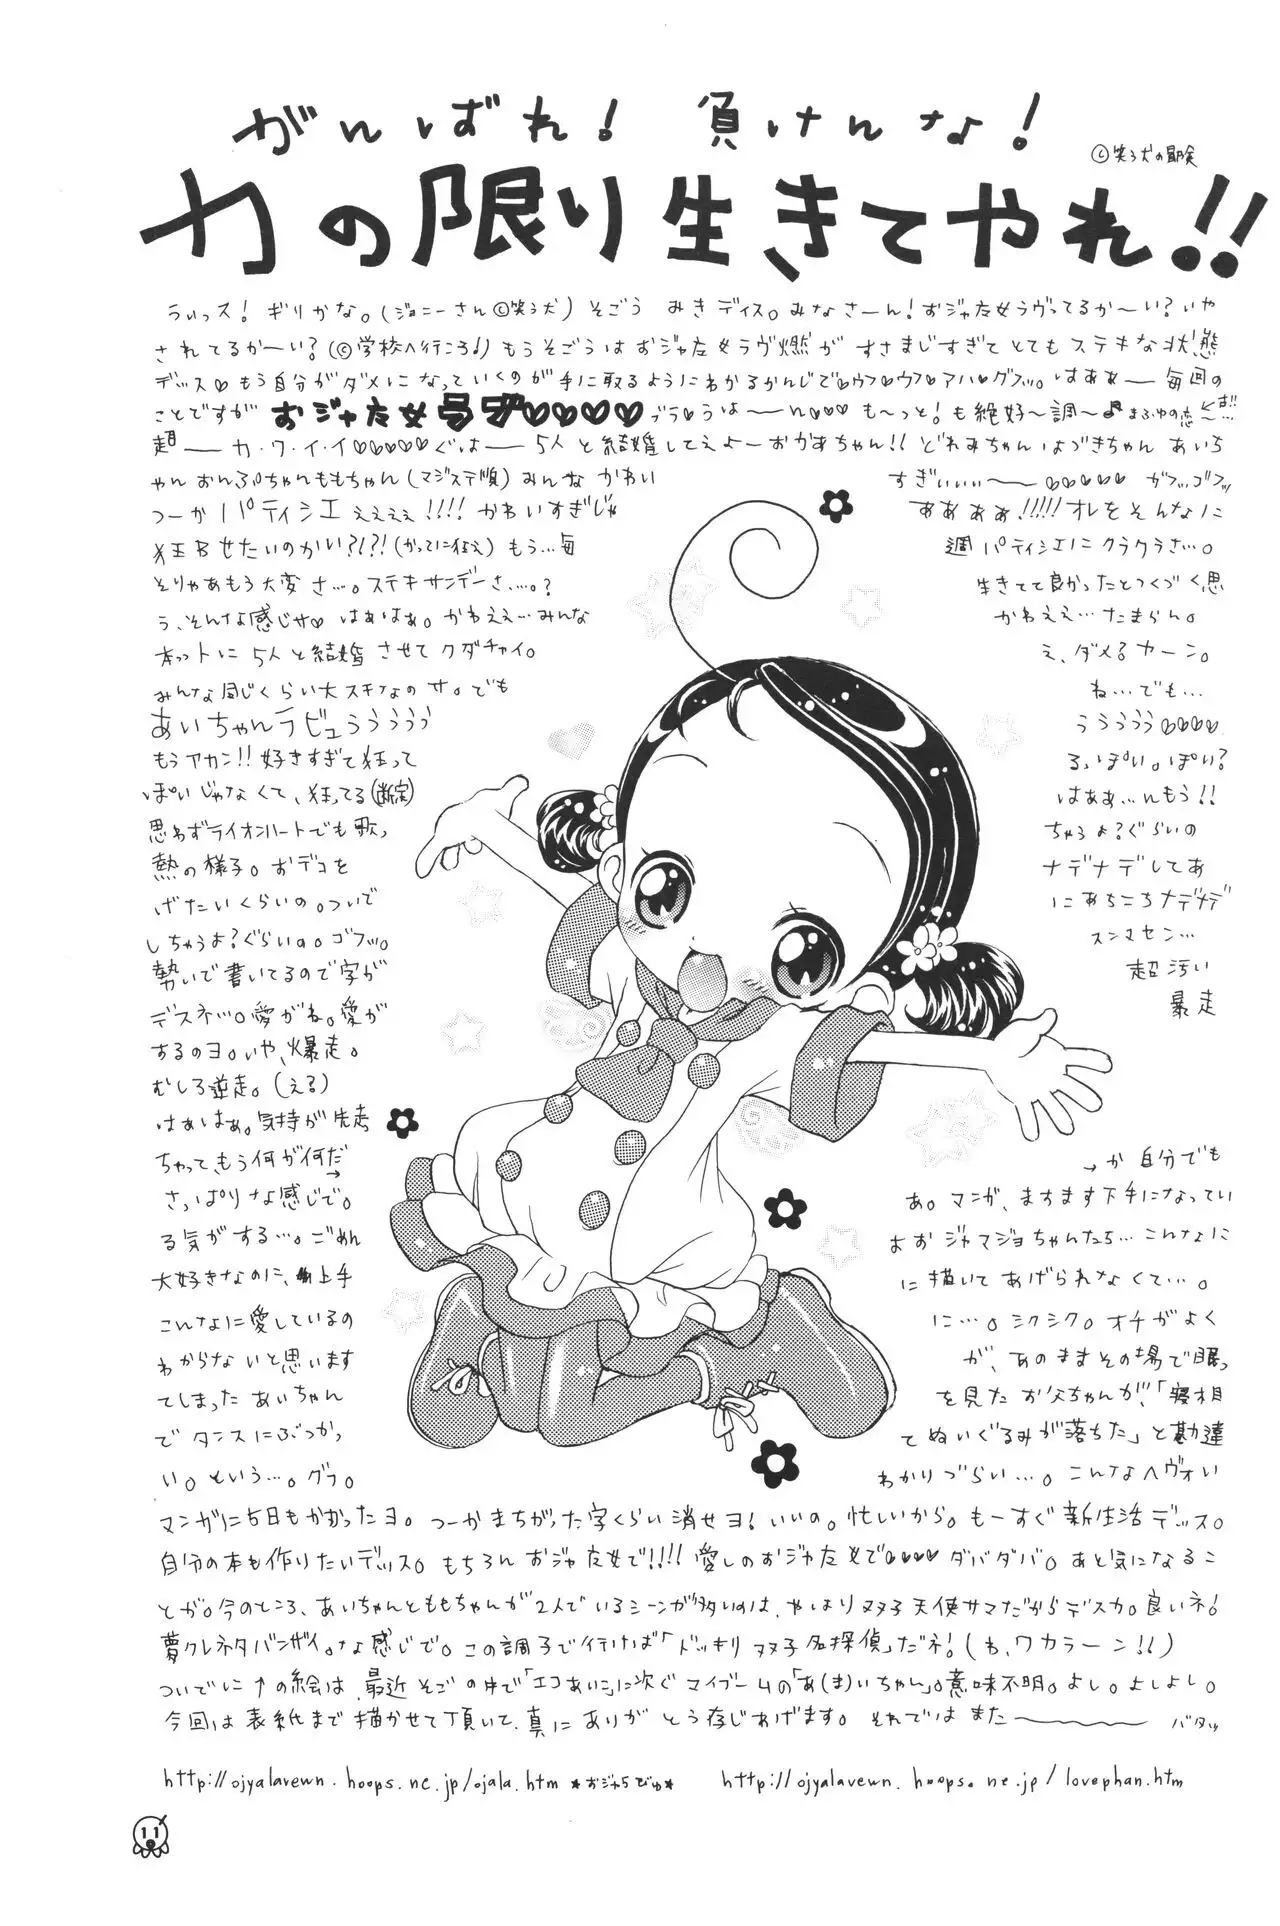 がんばれ! 負けんな!
©笑う犬の冒険
力の限り生きてやれ!!
うぃっス! ギリかな。(ジョニーさん©笑う犬) そごう みきディス。みなさーん! おジャ女ラヴってるか〜い? いや
されてるか〜い? (©学校へ行こう!) もうそごうは おジャ女ラヴ燃が すさまじすぎて とてもステキな状態
デッス♡もう自分がダメになっていくのが手に取るようにわかるかんじで♡ウフ♡ウフ♡アハ♡グフッ。はあぁー毎回の
ことですが おジャ女ラブ♡♡♡♡ ブラ♡うはーん♡♡♡ も〜っと! も絶好〜調〜♪まふゆの恋
超ーカ・ワ・イ・イ♡♡♡♡♡ぐはー5人と結婚してえよーおかあちゃん!! どれみちゃん はづきちゃん あいち
ゃん おんぷちゃん ももちゃん (マジステ順) みんな かわい すぎいぃぃ〜♡♡♡♡♡ ガフッゴフッ
つーか パティシエぇぇぇぇ!!!! かわいすぎじゃ ああぁぁ!!!!! オレをそんなに
狂わせたいのかい?!?! (かってに狂え) もう…毎 週 パティシエに クラクラさ…。
そりゃあもう大変さ…。ステキサンデーさ…。? 生きてて良かったとつくづく思
う、そんな感じサ♡ はあはあ。かわええ…みんな かわええ… たまらん。
ホットに 5人と結婚 させて クダチャイ。 え、ダメ? カーン。
みんな同じくらい大スキなのサ。でも ね…でも…
あいちゃんラビュううううっ うううううっ♡♡♡♡
もうアカン!! 好きすぎて狂って る、っぽい。ぽい?
ぽいじゃなくて、狂ってる(断定) はあぁ…んもう!!
思わずライオンハートでも歌っ ちゃうよ? ぐらいの
熱の様子。おデコを ナデナデしてあ
げたいくらいの。ついで にあちこちナデナデ
しちゃうよ? ぐらいの。ゴフッ。 スンマセン…
勢いで書いてるので字が 超汚い
デスネッ。愛がね。愛が 暴走
するのヨ。いや、爆走。
むしろ逆走。(える)
はぁはぁ。気持が先走
ちゃって、もう何が何だ→ →か 自分でも
さっぱりな感じで。 あ。マンガ、ますます下手になってい
る気がする…。ごめん よおジャマジョちゃんたち… こんなに
大好きなのに、上手 に描いてあげられなくて…。
こんなに愛しているの に…。シクシク。オチがよく
わからないと思います が、あのままその場で眠っ
てしまった あいちゃん を見た お父ちゃんが、「寝相
で タンスにぶつかっ てぬいぐるみが落ちた」と勘違
い。という…。グラ。 わかりづらい…。こんなヘヴォい
マンガに5日もかかったヨ。つーかまちがった字くらい消せヨ! いいの。忙しいから。もーすぐ新生活デッス。
自分の本も作りたいデッス。もちろん おジャ女で!!!! 愛しのおジャ女で♡♡♡♡ ダバダバ。あと気になるこ
とが。今のところ、あいちゃんとももちゃんが2人でいるシーンが多いのは、やはり双子天使サマだからデスカ。良いネ!
夢クレネタバンザイ。な感じで。この調子で行けば「ドッキリ双子名探偵」だネ! (わ、ワカラーン!!)
ついでに↑の絵は、最近 そごの中で「エコあいこ」に次ぐ マイブームの「あ(ま)いちゃん」。意味不明。よし。よしよし。
今回は表紙まで描かせて頂いて、真に ありがとう存じあげます。それではまた〜 バタッ
http://ojyalavewn.hoops.ne.jp/ojala.htm ★おジャらびゅ★ http://ojyalavewn.hoops.ne.jp/lovephan.htm
11